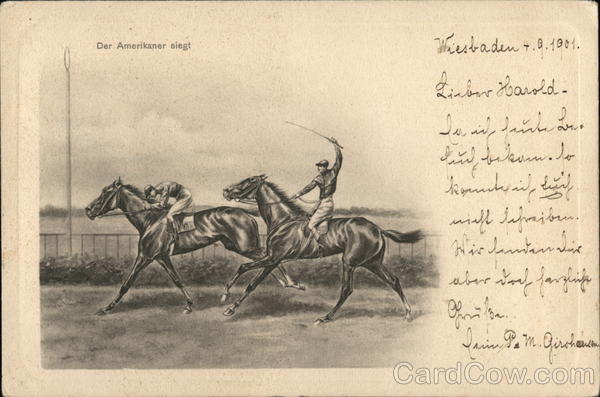 Der Amerikaner siegt
Wiesbaden 4.9.1901.
Lieber Harold -
Da ich heute Be-
such bekam. so
konnte ich Euch
nicht schreiben.
Wir senden Dir
aber doch herzliche
Grüße.
Dein Pa M.
CardCow.com